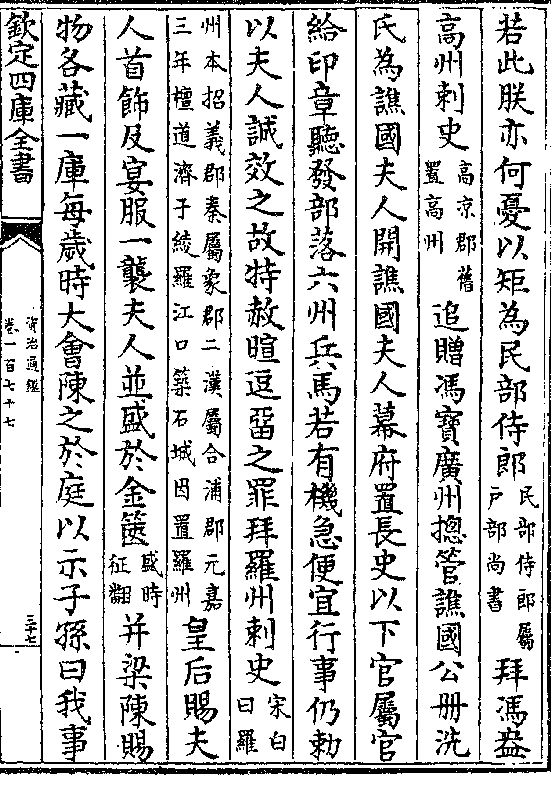 若此朕亦何憂以矩為民部侍郎民部侍郎屬戸部尚書拜馮盎
高州刺史高京郡舊置高州追贈馮寶廣州揔管譙國公册洗
氏為譙國夫人開譙國夫人幕府置長史以下官屬官
給印章聽發部落六州兵馬若有機急便宜行事仍勅
以夫人誠效之故特赦暄逗留之罪拜羅州刺史宋白曰羅
州本招義郡秦屬象郡二漢屬合浦郡元嘉三年檀道濟于綾羅江口築石城因置羅州皇后賜夫
人首飾及宴服一襲夫人並盛於金篋盛時征翻并梁陳賜
物各藏一庫每歲時大會陳之於庭以示子孫曰我事
欽定四庫全書
資治通鑑
卷一百七十七
三十七